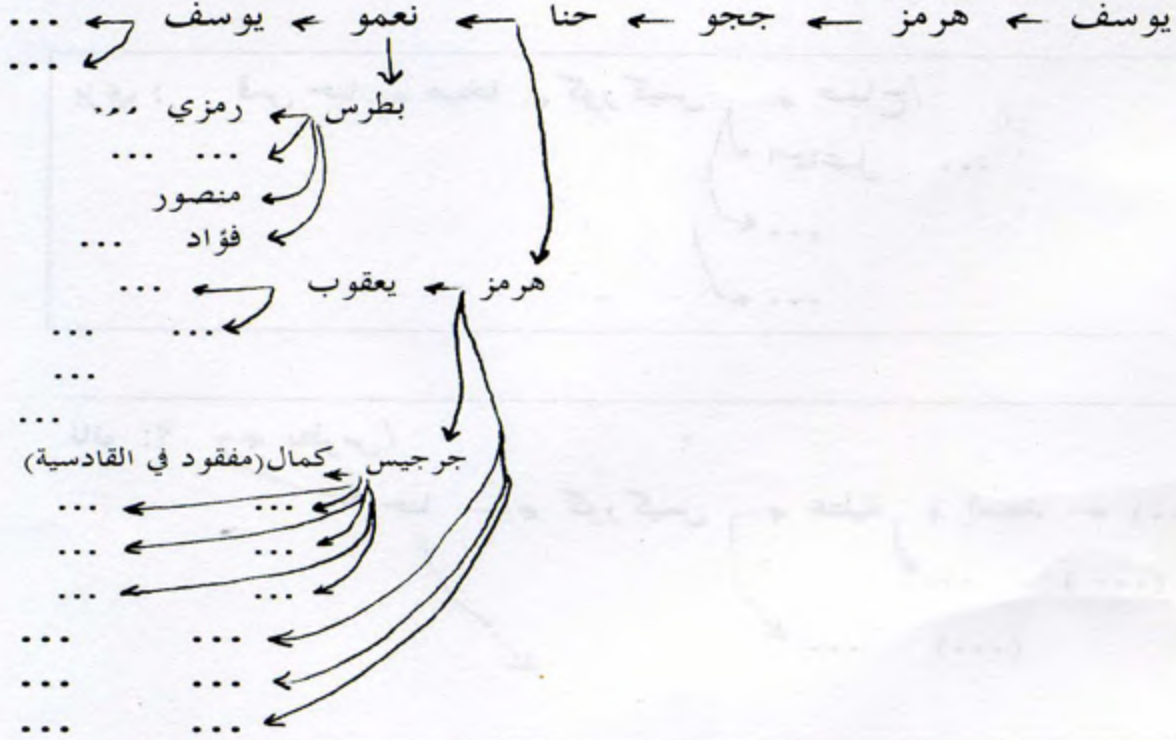 يوسف ← هرمز ← ججو ← حنا ← نعمو ← يوسف ← ...
...
بطرس ← رمزي ...
... ...
منصور
فؤاد ...
هرمز ← يعقوب ← ...
... ...
...
...
جرجيس ← كمال(مفقود في القادسية)
... ...
... ...
... ...
... ...
... ...
... ...